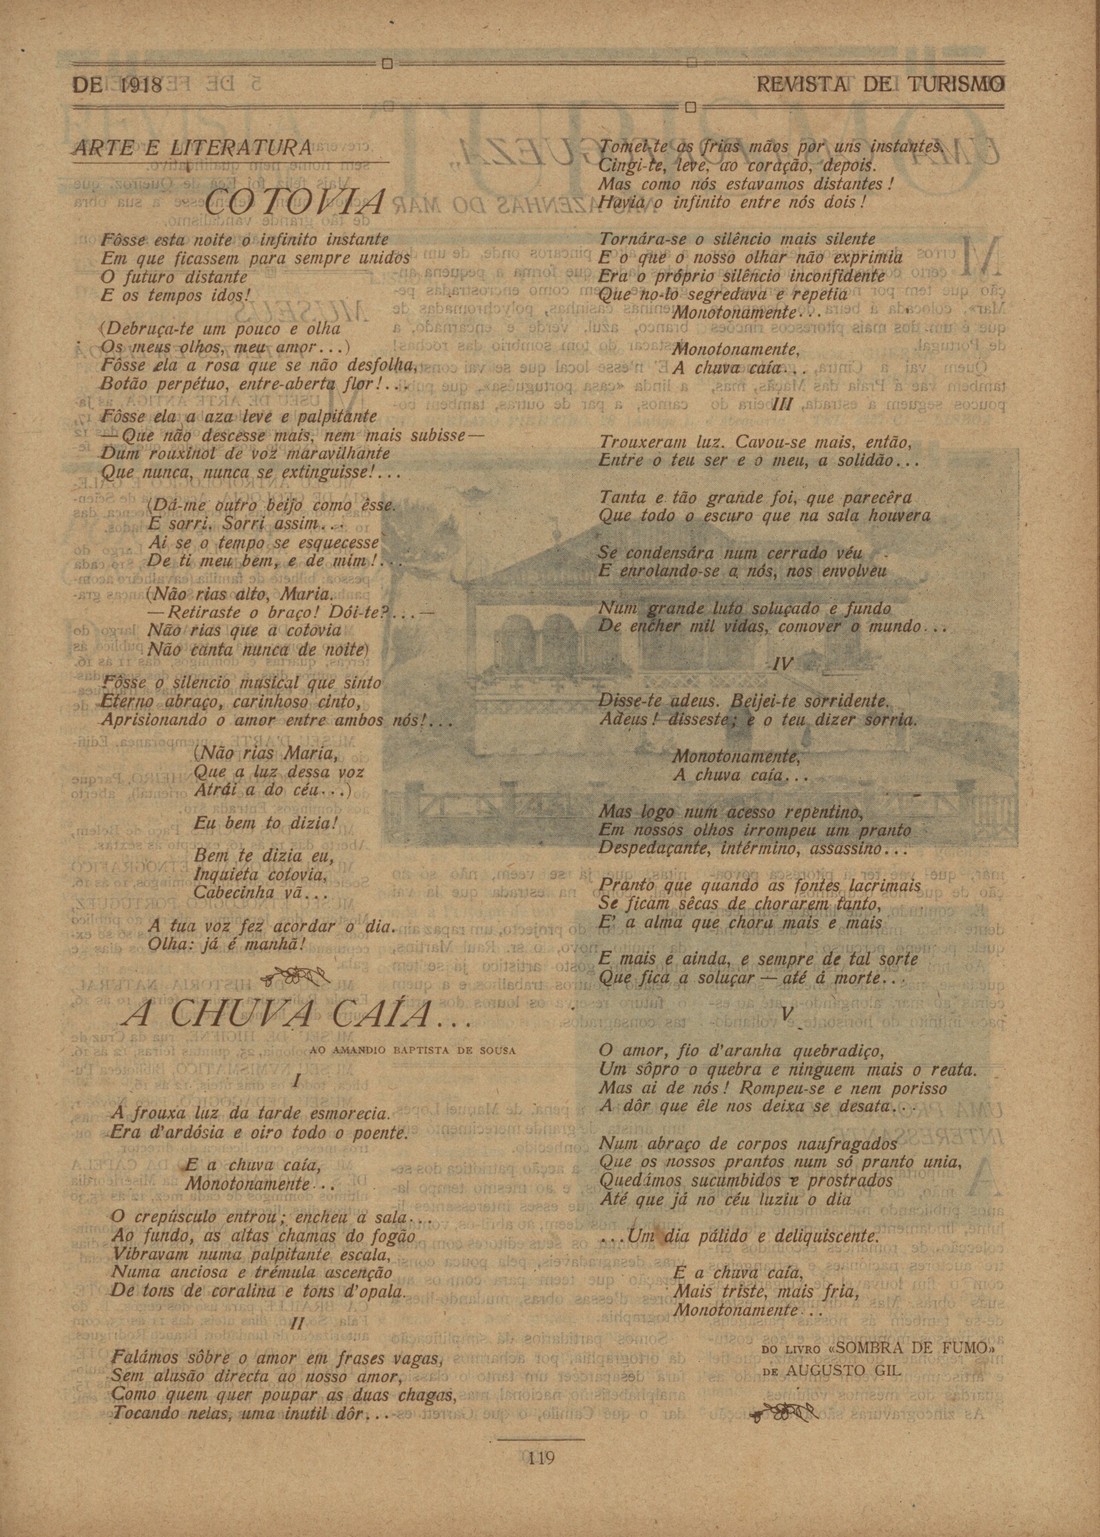 DE 1918
REVISTA DE TURISMO
ARTE E LITERATURA
COTOVIA
Fôsse esta noite o infinito instante
Em que ficassem para sempre unidos
O futuro distante
E os tempos idos!
(Debruça-te um pouco e olha
Os meus olhos, meu amor...)
Fôsse ela a rosa que se não desfolha,
Botão perpétuo, entre-aberta flor!...
Fôsse ela a aza leve e palpitante
—Que não descesse mais, nem mais subisse—
Dum rouxinol de voz maravilhante
Que nunca, nunca se extinguisse!...
(Dá-me outro beijo como êsse.
E sorri. Sorri assim...
Ai se o tempo se esquecesse
De ti meu bem, e de mim!...
(Não rias alto, Maria.
—Retiraste o braço! Dói-te?...—
Não rias que a cotovia
Não canta nunca de noite)
Fôsse o silencio musical que sinto
Eterno abraço, carinhoso cinto,
Aprisionando o amor entre ambos nós!...
(Não rias Maria,
Que a luz dessa voz
Atrái a do céu...)
Eu bem to dizia!
Bem te dizia eu,
Inquieta cotovia,
Cabecinha vã...
A tua voz fez acordar o dia.
Olha: já é manhã!
A CHUVA CAÍA...
AO AMANDIO BAPTISTA DE SOUSA
I
A frouxa luz da tarde esmorecia.
Era d'ardósia e oiro todo o poente.
E a chuva caía,
Monotonamente...
O crepúsculo entrou; encheu a sala...
Ao fundo, as altas chamas do fogão
Vibravam numa palpitante escala,
Numa anciosa e trémula ascenção
De tons de coralina e tons d'opala.
II
Falámos sôbre o amor em frases vagas,
Sem alusão directa ao nosso amor,
Como quem quer poupar as duas chagas,
Tocando nelas, uma inutil dôr...
Tomei-te as frias mãos por uns instantes.
Cingi-te, leve, ao coração, depois.
Mas como nós estavamos distantes!
Havia o infinito entre nós dois!
Tornára-se o silêncio mais silente
E o que o nosso olhar não exprimia
Era o próprio silêncio inconfidente
Que no-lo segredava e repetia
Monotonamente...
Monotonamente,
A chuva caía...
III
Trouxeram luz. Cavou-se mais, então,
Entre o teu ser e o meu, a solidão...
Tanta e tão grande foi, que parecêra
Que todo o escuro que na sala houvera
Se condensára num cerrado véu
E enrolando-se a nós, nos envolveu
Num grande luto soluçado e fundo
De encher mil vidas, comover o mundo...
IV
Disse-te adeus. Beijei-te sorridente.
Adeus! disseste; e o teu dizer sorria.
Monotonamente,
A chuva caía...
Mas logo num acesso repentino,
Em nossos olhos irrompeu um pranto
Despedaçante, intérmino, assassino...
Pranto que quando as fontes lacrimais
Se ficam sêcas de chorarem tanto,
E' a alma que chora mais e mais
E mais é ainda, e sempre de tal sorte
Que fica a soluçar—até á morte...
V
O amor, fio d'aranha quebradiço,
Um sôpro o quebra e ninguem mais o reata.
Mas ai de nós! Rompeu-se e nem porisso
A dôr que êle nos deixa se desata...
Num abraço de corpos naufragados
Que os nossos prantos num só pranto unia,
Quedámos sucumbidos e prostrados
Até que já no céu luziu o dia
...Um dia pálido e deliquiscente.
E a chuva caía,
Mais triste, mais fria,
Monotonamente...
DO LIVRO «SOMBRA DE FUMO»
DE AUGUSTO GIL
119